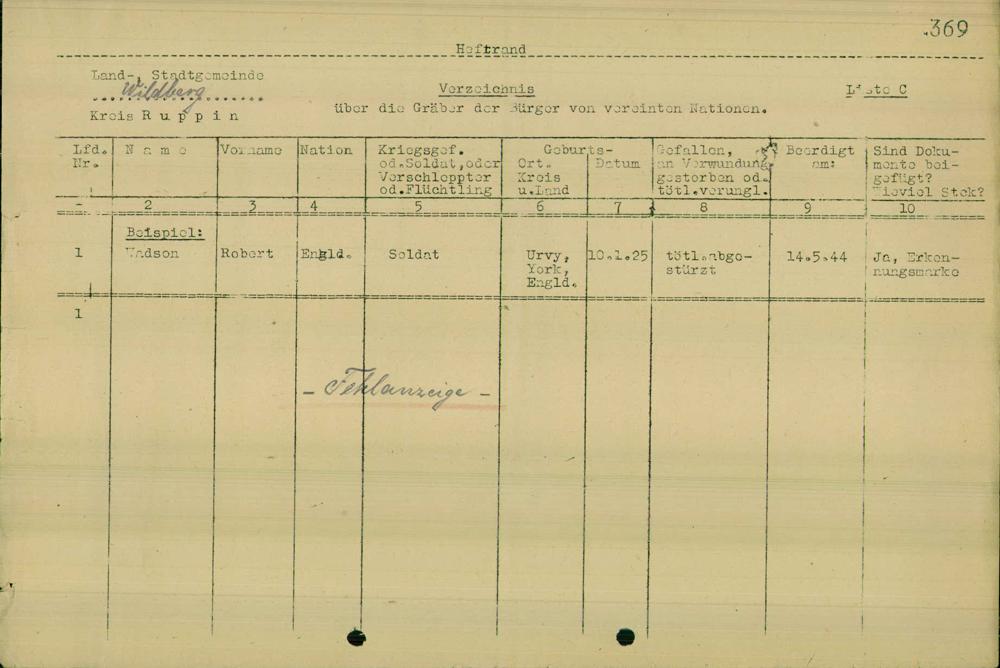 369
Heftrand
Land-, Stadtgemeinde
Wildberg
Kreis Ruppin
Verzeichnis
über die Gräber der Bürger von vereinten Nationen.
Liste C
Lfd. Nr.
Name
Vorname
Nation
Kriegsgef.
od.Soldat,oder
Verschleppter
od.Flüchtling
Geburts-
Ort.
Kreis
u.Land
Datum
Gefallen,
an Verwundung
gestorben od.
tötl.verungl.
Beerdigt
am:
Sind Doku-
mente bei-
gefügt?
Wieviel Stck?
- 2 3 4 5 6 7 8 9 10
Beispiel:
1 Wadson Robert Engld. Soldat Urvy, York, Engld. 10.1.25 tötl.abge-stürzt 14.5.44 Ja, Erken-nungsmarke
1
- Fehlanzeige -